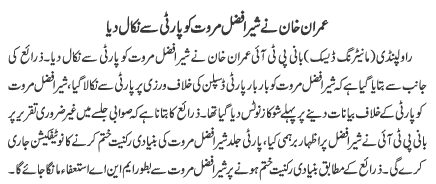 عمران خان نے شیر افضل مروت کو پارٹی سے نکال دیا
راولپنڈی (مانیٹرنگ ڈیسک) بانی پی ٹی آئی عمران خان نے شیر افضل مروت کو پارٹی سے نکال دیا۔ ذرائع کی
جانب سے بتایا گیا ہے کہ شیر افضل مروت کو بار بار پارٹی ڈسپلن کی خلاف ورزی پر پارٹی سے نکالا گیا، شیر افضل مروت
کو پارٹی کے خلاف بیانات دینے پر پہلے شوکاز نوٹس دیا گیا تھا۔ ذرائع کا بتانا ہے کہ صوابی جلسے میں غیر ضروری تقریر پر
بانی پی ٹی آئی نے شیر افضل پر اظہار برہمی کیا، پارٹی جلد شیر افضل مروت کی بنیادی رکنیت ختم کرنے کا نوٹیفکیشن جاری
کرے گی۔ ذرائع کے مطابق بنیادی رکنیت ختم ہونے پر شیر افضل مروت سے بطور ایم این اے استعفاء مانگا جائے گا۔